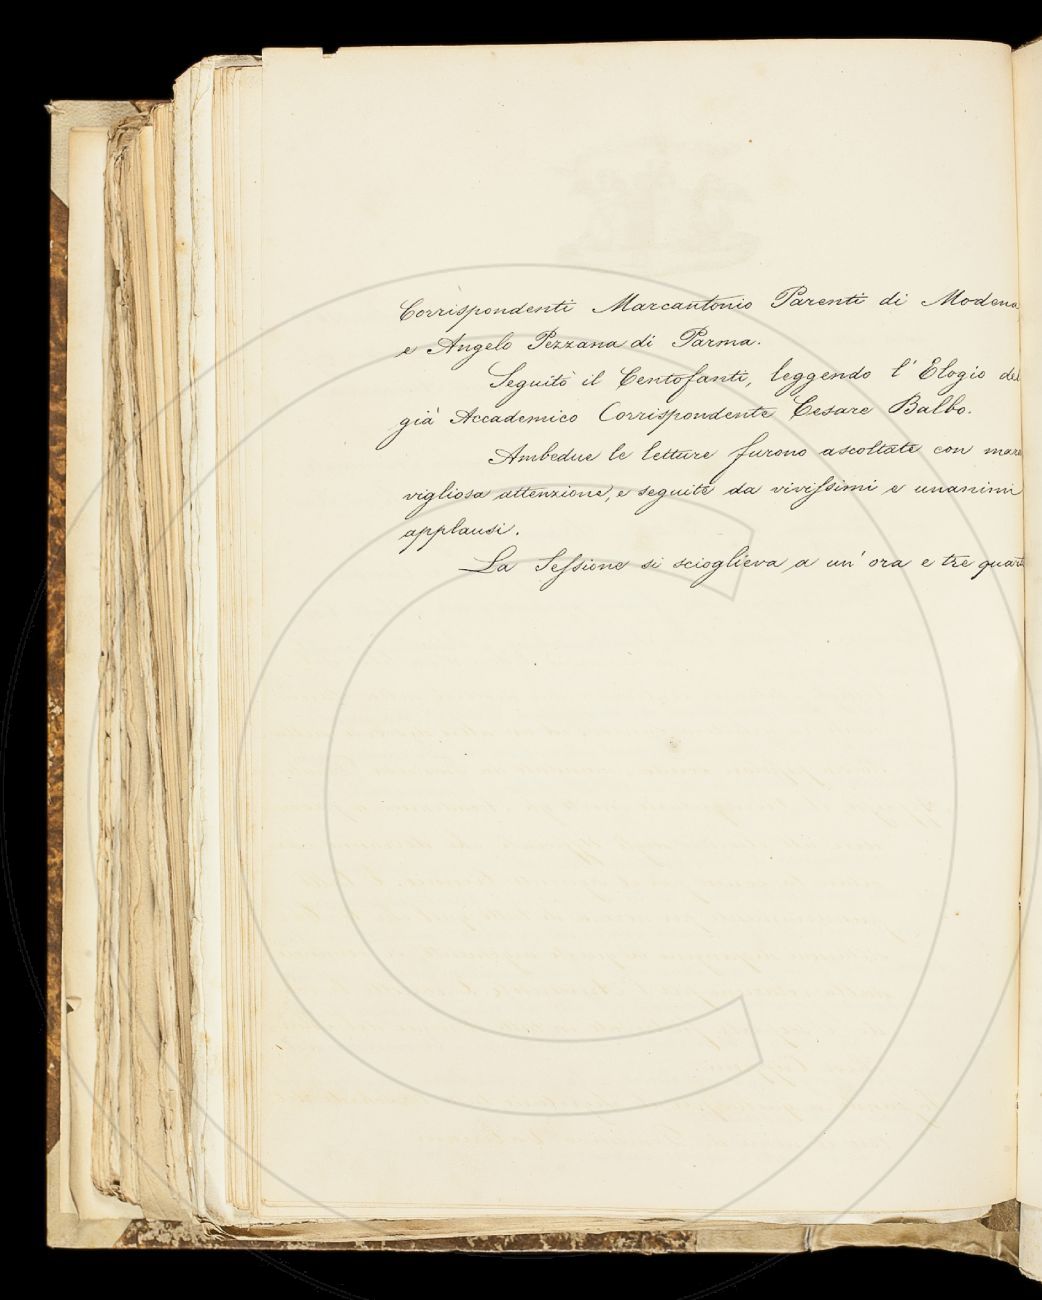 Corrispondenti Marcantonio Parenti di Modena
e Angelo Pezzana di Parma.
Seguitò il Centofanti, leggendo l'Elogio del
già Accademico Corrispondente Cesare Balbo.
Ambedue le letture furono ascoltate con mara
vigliosa attenzione, e seguite da vivissimi e unanimi
applausi.
La Sessione si scioglieva a un'ora e tre quarti